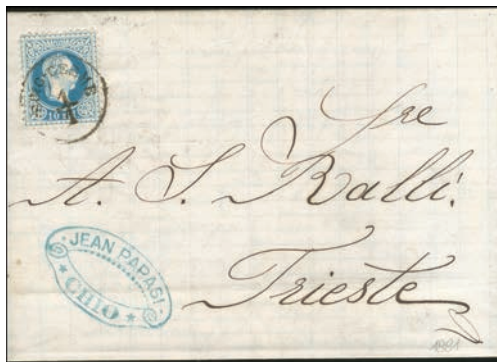 10
Sre
A. S. Ralli.
Trieste
JEAN PAPASI
CHIO
1881